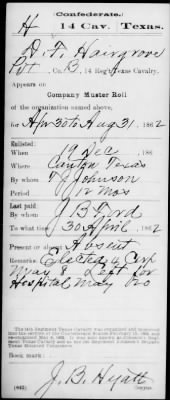 (Confederate.)
H 14 Cav. Texas.
D. F. Hairgrove
Pvt, Co. B, 14 Reg't Texas Cavalry.
Appears on
Company Muster Roll
of the organization named above,
for Apr 30 to Aug 31, 1862
Enlisted:
When 19 Dec, 186
Where Canton Texas
By whom T. J. Johnson
Period 12 mos
Last paid:
By whom J. B. Ford
To what time 30 April, 1862
Present or absent Absent
Remarks: Elected 4 Corp
May 8 Left for
Hospital May 20
Book mark:
J. B. Hyatt
(642) Copyist.